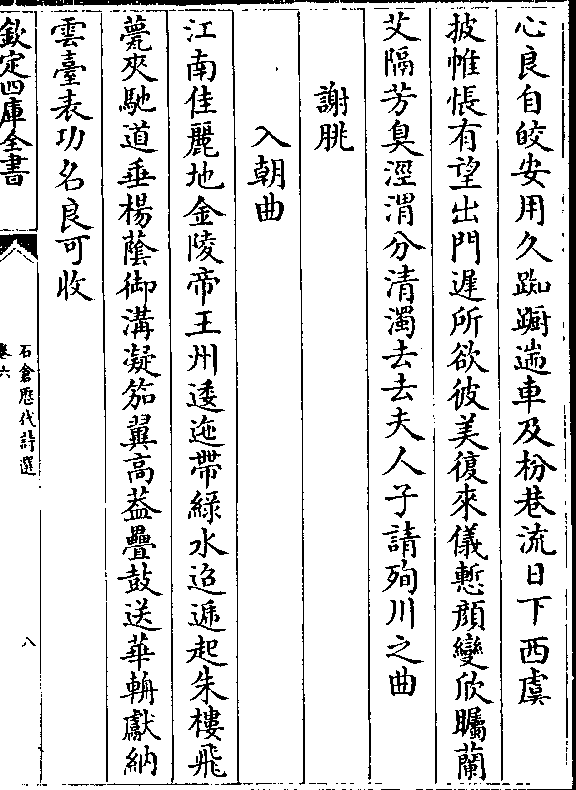 心良自皎安用久踟躕遄車及枌巷流日下西虞
披帷悵有望出門遲所欲彼美復來儀慙顔變欣矚蘭
艾隔芳臭涇渭分清濁去去夫人子請殉川之曲
謝朓
入朝曲
江南佳麗地金陵帝王州逶迤帶綠水迢遞起朱樓飛
甍夾馳道垂楊蔭御溝凝笳翼高蓋疊鼓送華輈獻納
雲臺表功名良可收
欽定四庫全書
石倉歷代詩選
卷六
八